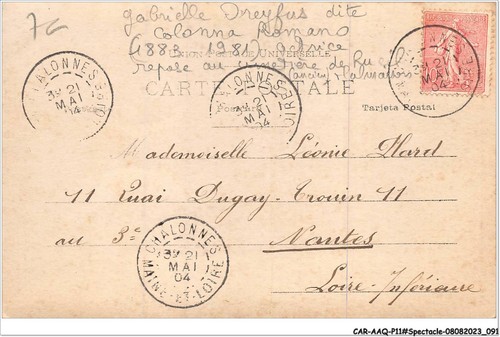 7€
gabrielle Dreyfus dite
Colonna Romano
1883 1981 actrice
UNION POSTALE UNIVERSELLE
repose au cimetière de Rueil
ancien Malmaison
CARTE POSTALE
Postcard Tarjeta Postal
CHALONNES
3E 21
MAI
04
CHALONNES
21
MAI
04
21
MAI
04
Mademoiselle Léonie Huard
11 Quai Dugay-Trouin 11
au 3e Nantes
Loire-Inférieure
CHALONNES
3E 21
MAI
04
MAINE-ET-LOIRE
CAR-AAQ-P11#Spectacle-08082023_091